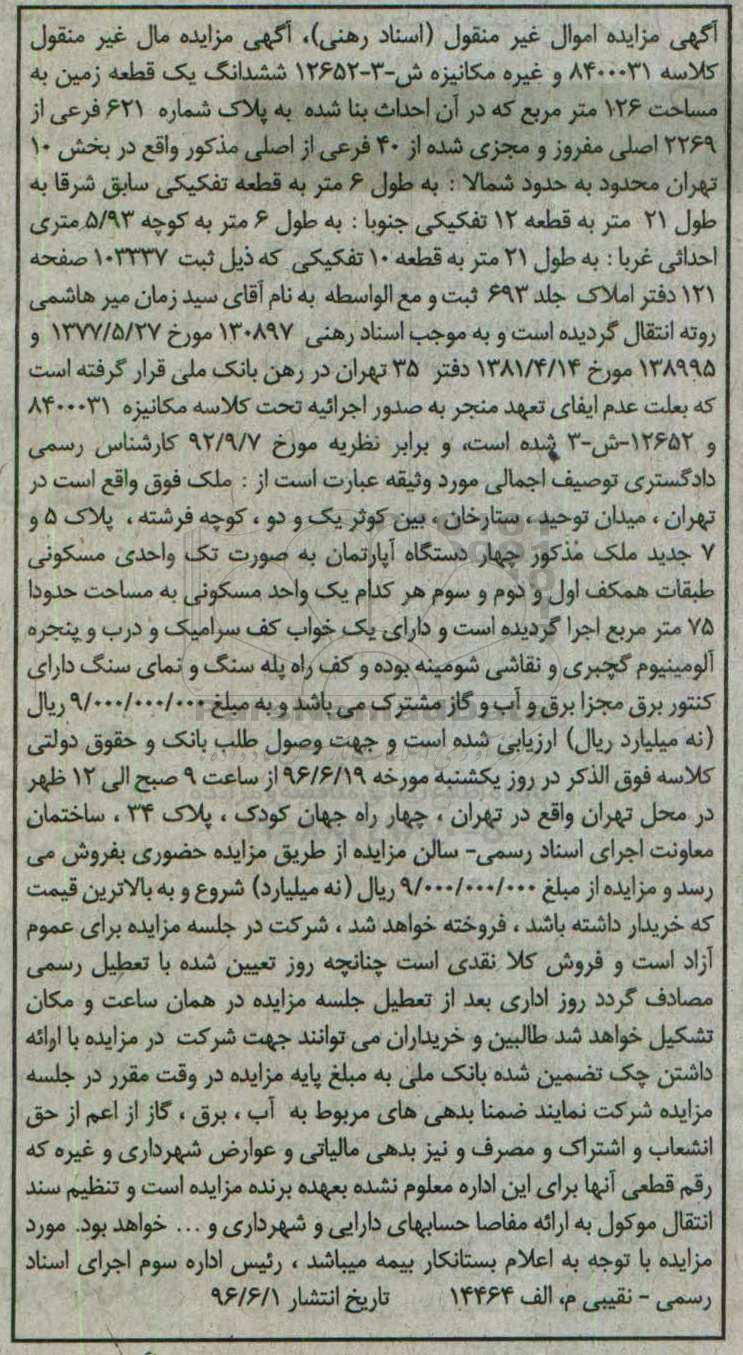 آگهی مزایده اموال غیر منقول (اسناد رهنی)، آگهی مزایده مال غیر منقول
کلاسه ۸۴۰۰۰۳۱ و غیره مکانیزه ش-۳-۱۲۶۵۲ ششدانگ یک قطعه زمین به
مساحت ۱۲۶ متر مربع که در آن احداث بنا شده به پلاک شماره ۶۲۱ فرعی از
۲۲۶۹ اصلی مفروز و مجزی شده از ۴۰ فرعی از اصلی مذکور واقع در بخش ۱۰
تهران محدود به حدود شمالا : به طول ۶ متر به قطعه تفکیکی سابق شرقا به
طول ۲۱ متر به قطعه ۱۲ تفکیکی جنوبا : به طول ۶ متر به کوچه ۵/۹۳ متری
احداثی غربا : به طول ۲۱ متر به قطعه ۱۰ تفکیکی که ذیل ثبت ۱۰۳۳۳۷ صفحه
۱۲۱ دفتر املاک جلد ۶۹۳ ثبت و مع الواسطه به نام آقای سید زمان میر هاشمی
روته انتقال گردیده است و به موجب اسناد رهنی ۱۳۰۸۹۷ مورخ ۱۳۷۷/۵/۲۷ و
۱۳۸۹۹۵ مورخ ۱۳۸۱/۴/۱۴ دفتر ۳۵ تهران در رهن بانک ملی قرار گرفته است
که بعلت عدم ایفای تعهد منجر به صدور اجرائیه تحت کلاسه مکانیزه ۸۴۰۰۰۳۱
و ۱۲۶۵۲-ش-۳ شده است، و برابر نظریه مورخ ۹۲/۹/۷ کارشناس رسمی
دادگستری توصیف اجمالی مورد وثیقه عبارت است از : ملک فوق واقع است در
تهران ، میدان توحید ، ستارخان ، بین کوثر یک و دو ، کوچه فرشته ، پلاک ۵ و
۷ جدید ملک مذکور چهار دستگاه آپارتمان به صورت تک واحدی مسکونی
طبقات همکف اول و دوم و سوم هر کدام یک واحد مسکونی به مساحت حدودا
۷۵ متر مربع اجرا گردیده است و دارای یک خواب کف سرامیک و درب و پنجره
آلومینیوم گچبری و نقاشی شومینه بوده و کف راه پله سنگ و نمای سنگ دارای
کنتور برق مجزا برق و آب و گاز مشترک می باشد و به مبلغ ۹/۰۰۰/۰۰۰/۰۰۰ ریال
(نه میلیارد ریال) ارزیابی شده است و جهت وصول طلب بانک و حقوق دولتی
کلاسه فوق الذکر در روز یکشنبه مورخه ۹۶/۶/۱۹ از ساعت ۹ صبح الی ۱۲ ظهر
در محل تهران واقع در تهران ، چهار راه جهان کودک ، پلاک ۳۴ ، ساختمان
معاونت اجرای اسناد رسمی- سالن مزایده از طریق مزایده حضوری بفروش می
رسد و مزایده از مبلغ ۹/۰۰۰/۰۰۰/۰۰۰ ریال (نه میلیارد) شروع و به بالاترین قیمت
که خریدار داشته باشد ، فروخته خواهد شد ، شرکت در جلسه مزایده برای عموم
آزاد است و فروش کلا نقدی است چنانچه روز تعیین شده با تعطیل رسمی
مصادف گردد روز اداری بعد از تعطیل جلسه مزایده در همان ساعت و مکان
تشکیل خواهد شد طالبین و خریداران می توانند جهت شرکت در مزایده با ارائه
داشتن چک تضمین شده بانک ملی به مبلغ پایه مزایده در وقت مقرر در جلسه
مزایده شرکت نمایند ضمنا بدهی های مربوط به آب ، برق ، گاز از اعم از حق
انشعاب و اشتراک و مصرف و نیز بدهی مالیاتی و عوارض شهرداری و غیره که
رقم قطعی آنها برای این اداره معلوم نشده بعهده برنده مزایده است و تنظیم سند
انتقال موکول به ارائه مفاصا حسابهای دارایی و شهرداری و ... خواهد بود. مورد
مزایده با توجه به اعلام بستانکار بیمه میباشد ، رئیس اداره سوم اجرای اسناد
رسمی - نقیبی م، الف ۱۴۴۶۴ تاریخ انتشار ۹۶/۶/۱